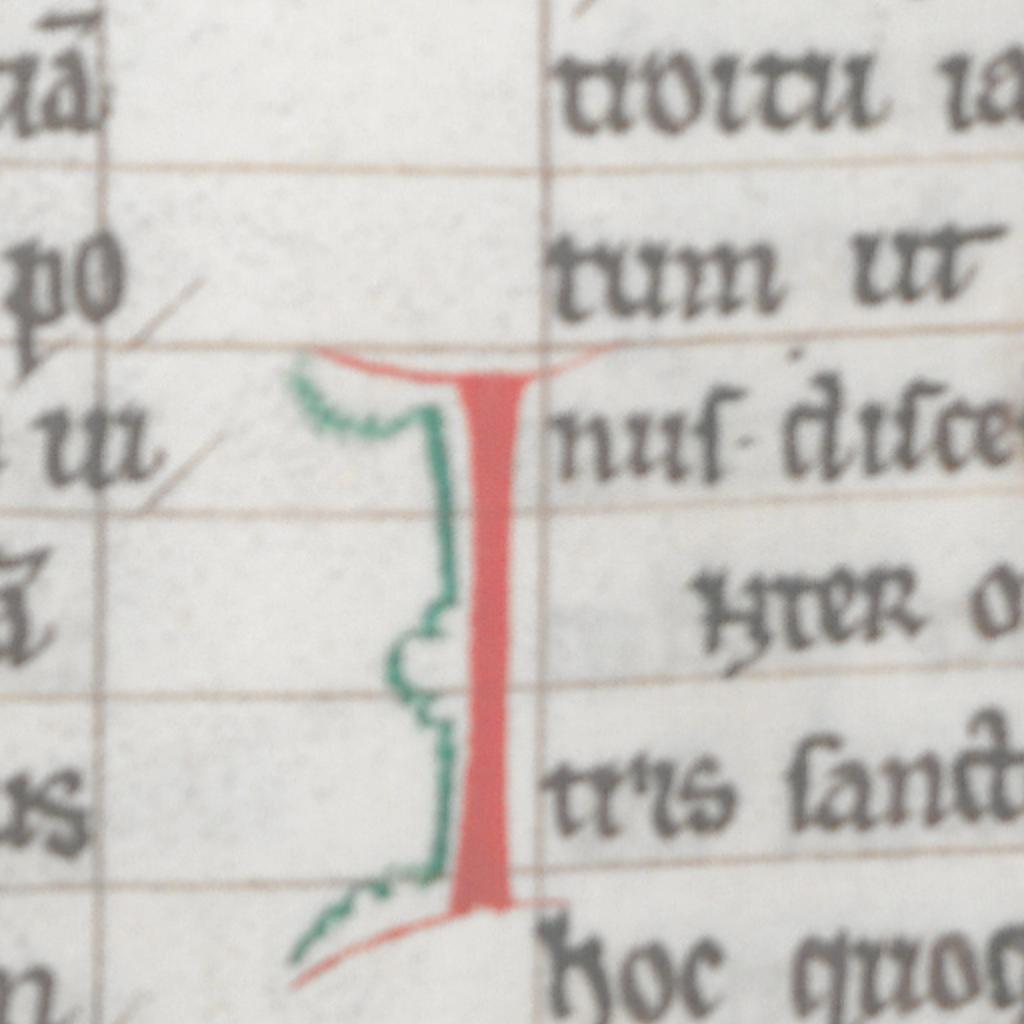 uā
po
ui
ā
us
n
uoitu ia
tum ut
nuſ· diſce
I NTER o
tris ſanct
hoc quoq